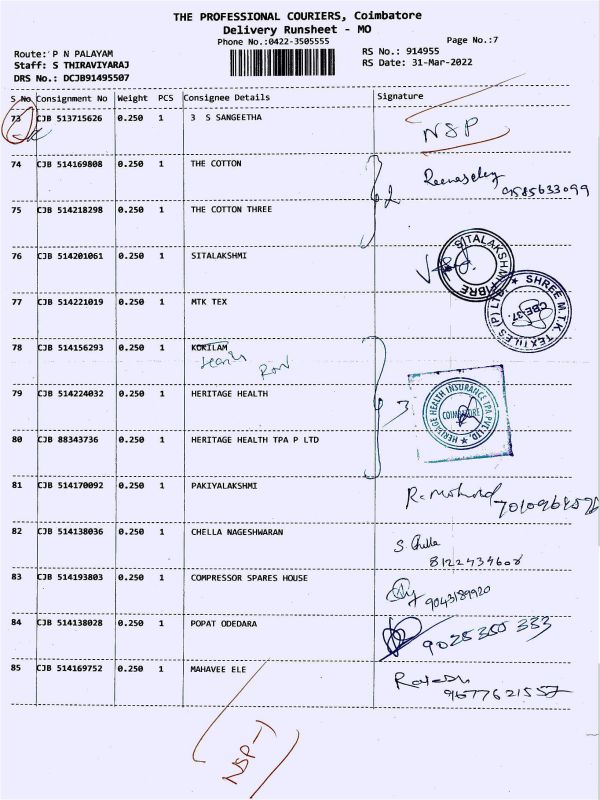 THE PROFESSIONAL COURIERS, Coimbatore
Delivery Runsheet - MO
Phone No.:0422-3505555
Page No.:7
Route: P N PALAYAM
Staff: S THIRAVIYARAJ
DRS No.: DCJB91495507
RS No.: 914955
RS Date: 31-Mar-2022
S No Consignment No Weight PCS Consignee Details Signature
73 CJB 513715626 0.250 1 3 S SANGEETHA NSP
74 CJB 514169808 0.250 1 THE COTTON
2
9585633099
75 CJB 514218298 0.250 1 THE COTTON THREE
76 CJB 514201061 0.250 1 SITALAKSHMI
SITALAKSHMI FIBRE
77 CJB 514221019 0.250 1 MTK TEX
SHREE M.T.K. TEXTILES (P) LTD.
CBE-37.
78 CJB 514156293 0.250 1 KOKILAM
79 CJB 514224032 0.250 1 HERITAGE HEALTH
3
HERITAGE HEALTH INSURANCE TPA PVT LTD
COIMBATORE
80 CJB 88343736 0.250 1 HERITAGE HEALTH TPA P LTD
81 CJB 514170092 0.250 1 PAKIYALAKSHMI
82 CJB 514138036 0.250 1 CHELLA NAGESHWARAN
S. Chella
8122434608
83 CJB 514193803 0.250 1 COMPRESSOR SPARES HOUSE
9043189920
84 CJB 514138028 0.250 1 POPAT ODEDARA
9025350333
85 CJB 514169752 0.250 1 MAHAVEE ELE
Rajesh
9677621557
NSP-1